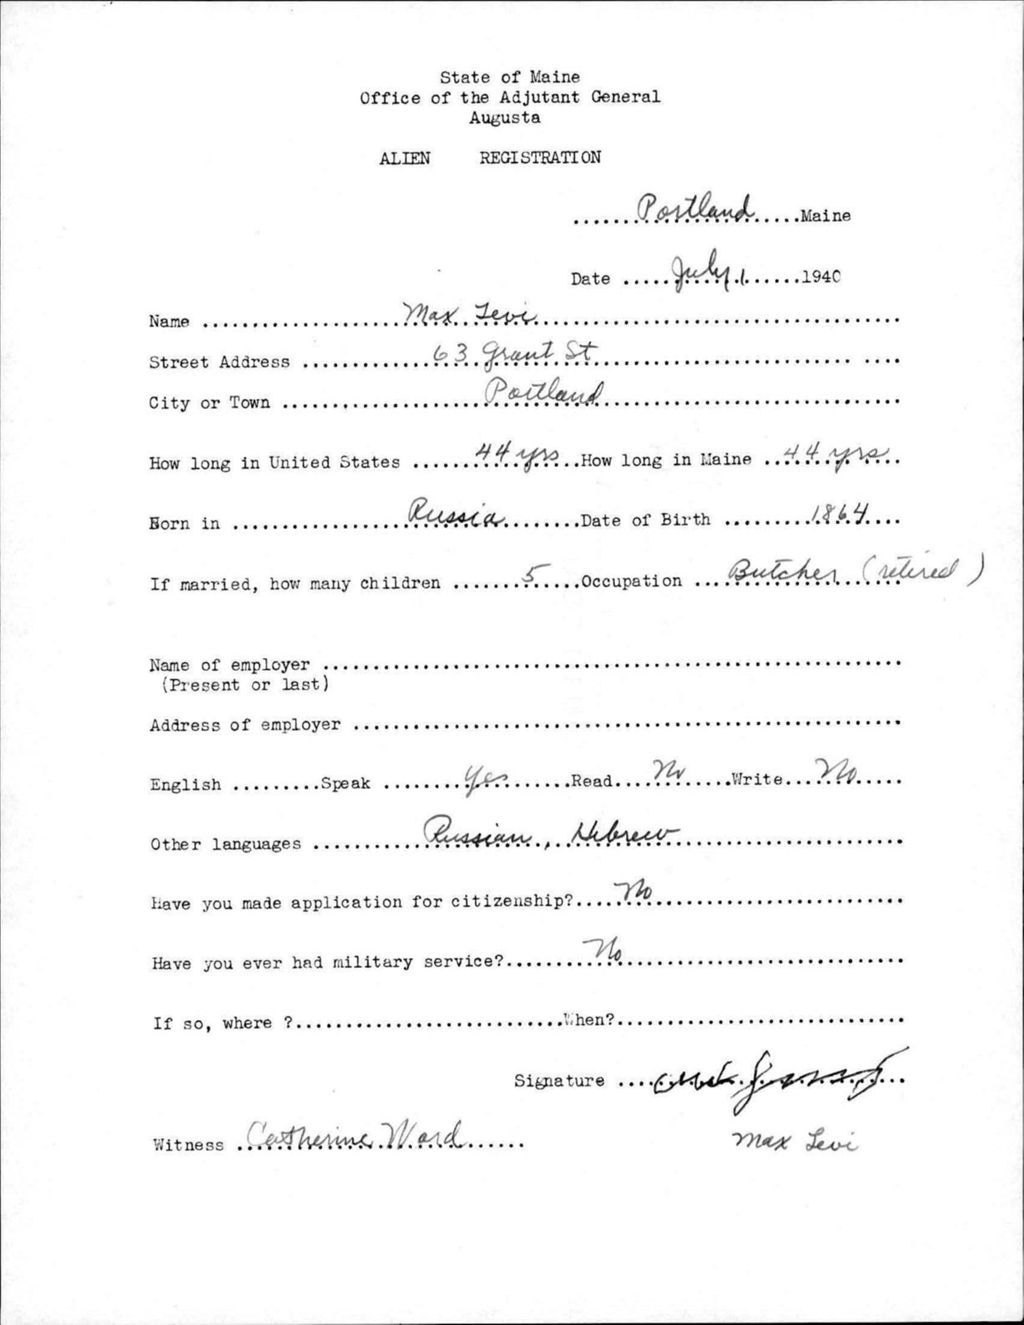 State of Maine
Office of the Adjutant General
Augusta
ALIEN REGISTRATION
.......Portland.....Maine
Date .....July 1.......1940
Name ....................Max Levi..............................
Street Address ............63 Grant St.......................... ....
City or Town ....................Portland.........................
How long in United States ......44 yrs...How long in Maine ..44 yrs..
Born in ..................Russia........Date of Birth .........1864....
If married, how many children .......5.....Occupation ....Butcher (retired)
Name of employer ..........................................................
(Present or last)
Address of employer .......................................................
English .........Speak ........Yes........Read....No.....Write...No.....
Other languages ...........Russian, Hebrew.......................
Have you made application for citizenship?.....No..........................
Have you ever had military service?.........No............................
If so, where ?...........................When?.............................
Signature ....
Witness ..Catherine Ward......
Max Levi